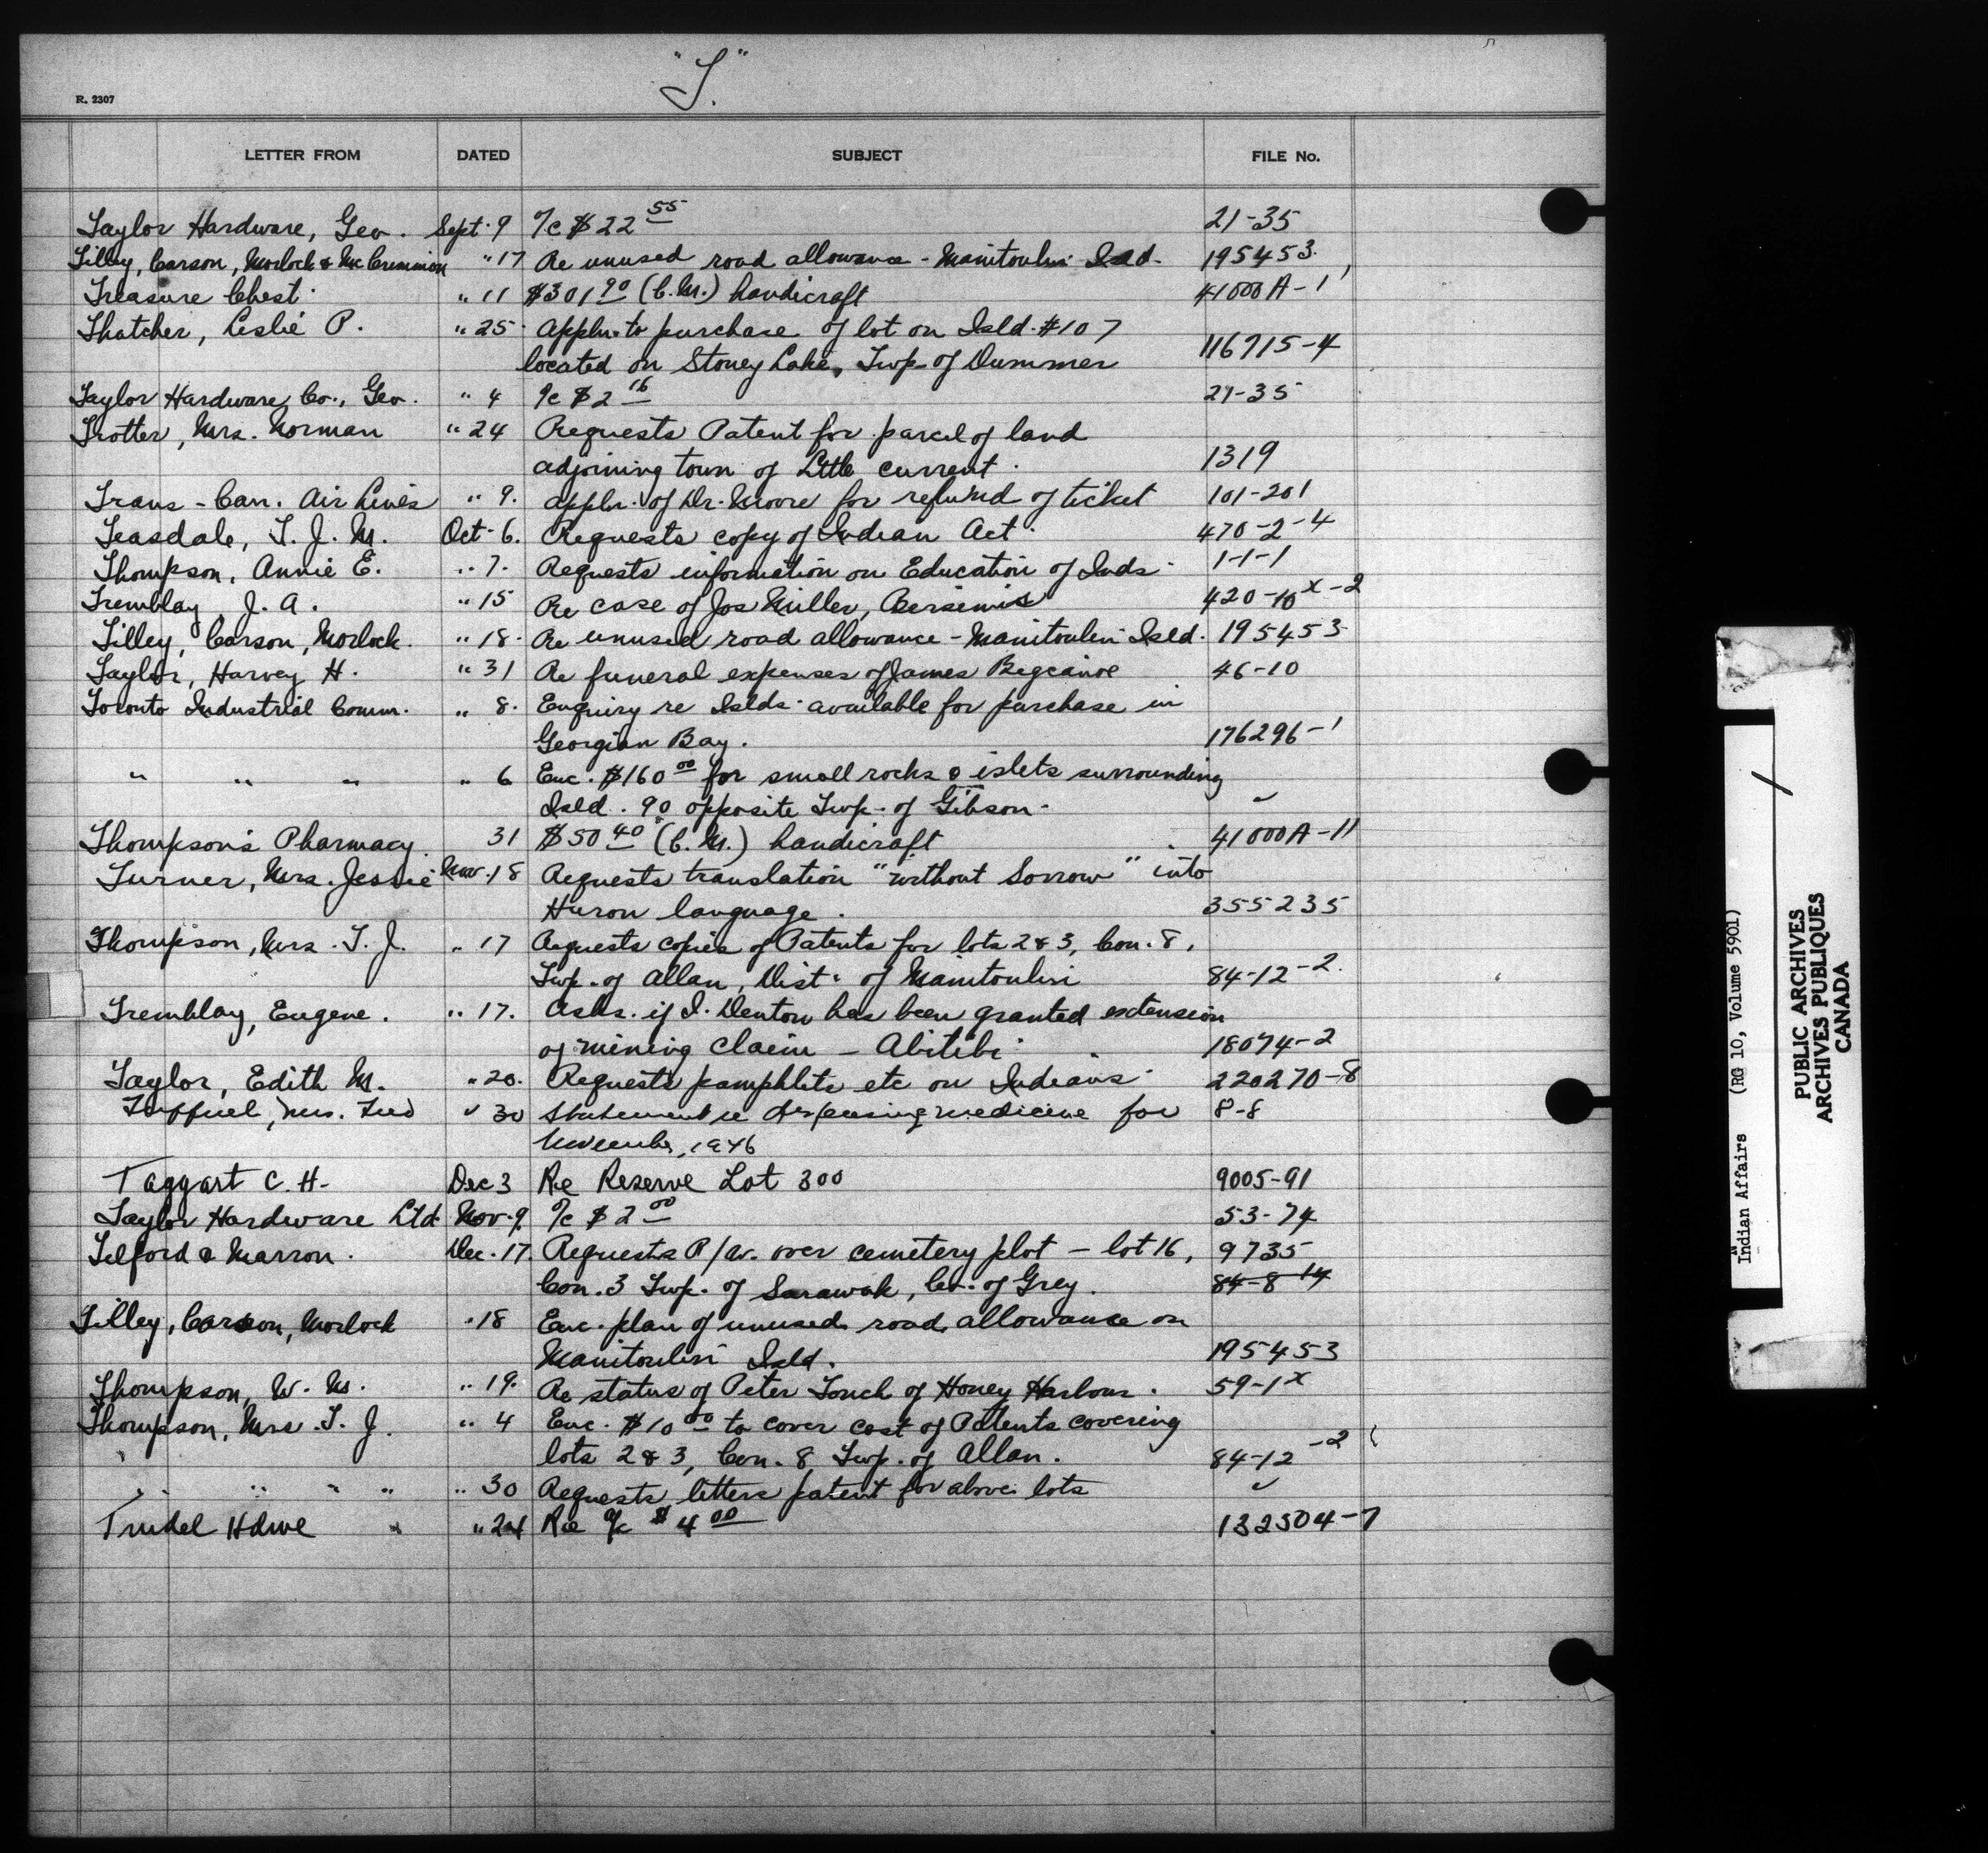 "T."
R. 2307
LETTER FROM DATED SUBJECT FILE No.
Taylor Hardware, Geo. Sept. 9 a/c $22 55 21-35
Tilley, Carson, Morlock & McCrimmon " 17 Re unused road allowance - Manitoulin Isld. 195453
Treasure Chest " 11 $301 90 (C.M.) handicraft 41000A-1
Thatcher, Leslie P. " 25 Appln. to purchase of lot on Isld. #107
located on Stoney Lake, Twp. of Dummer 116715-4
Taylor Hardware Co., Geo. " 4 a/c $2 16 21-35
Trotter, Mrs. Norman " 24 Requests Patent for parcel of land
adjoining town of Little Current. 1319
Trans-Can. Air Lines " 9. Appln. of Dr. Moore for refund of ticket 101-201
Teasdale, T. J. M. Oct. 6. Requests copy of Indian Act. 470-2-4
Thompson, Annie E. " 7. Requests information on Education of Inds. 1-1-1
Tremblay, J. A. " 15 Re case of Jos Miller, Bersimis 420-10x-2
Tilley, Carson, Morlock. " 18. Re unused road allowance - Manitoulin Isld. 195453
Taylor, Harvey H. " 31 Re funeral expenses of James Bigcanoe 46-10
Toronto Industrial Comm. " 8. Enquiry re Islds. available for purchase in
Georgian Bay. 176296-1
" " " " 6 Enc. $160 00 for small rocks & islets surrounding
Isld. 90 opposite Twp. of Gibson. "
Thompson's Pharmacy 31 $50 40 (C.M.) handicraft 41000A-11
Turner, Mrs. Jessie Nov. 18 Requests translation "without Sorrow" into
Huron language. 355235
Thompson, Mrs. T. J. " 17 Requests copies of Patents for lots 2 & 3, Con. 8,
Twp. of Allan, Dist. of Manitoulin 84-12-2.
Tremblay, Eugene. " 17. Asks if I. Denton has been granted extension
of mining claim - Abitibi. 18074-2
Taylor, Edith M. " 20. Requests pamphlets etc on Indians 220270-8
Mrs. " 30 Statement re dispensing medicine for 8-8
November, 1946
Taggart C. H. Dec 3 Re Reserve Lot 300 9005-91
Taylor Hardware Ltd Nov. 9. a/c $2 00 53-74
Telford & Marron. Dec. 17. Requests R/W. over cemetery plot - lot 16, 9735
Con. 3 Twp. of Sarawak, Co. of Grey. 84-8-14
Tilley, Carson, Morlock " 18 Enc. plan of unused road allowance on
Manitoulin Isld. 195453
Thompson, W. M. " 19. Re status of Peter Tonch of Honey Harbour. 59-1x
Thompson, Mrs. T. J. " 4 Enc. $10 00 to cover cost of Patents covering
lots 2 & 3, Con. 8 Twp. of Allan. 84-12-2
" " " " " 30 Requests letters patent for above lots "
Trudel Hdwe " 24 Re a/c $4 00 132504-7
Indian Affairs (RG 10, Volume 5901)
PUBLIC ARCHIVES
ARCHIVES PUBLIQUES
CANADA